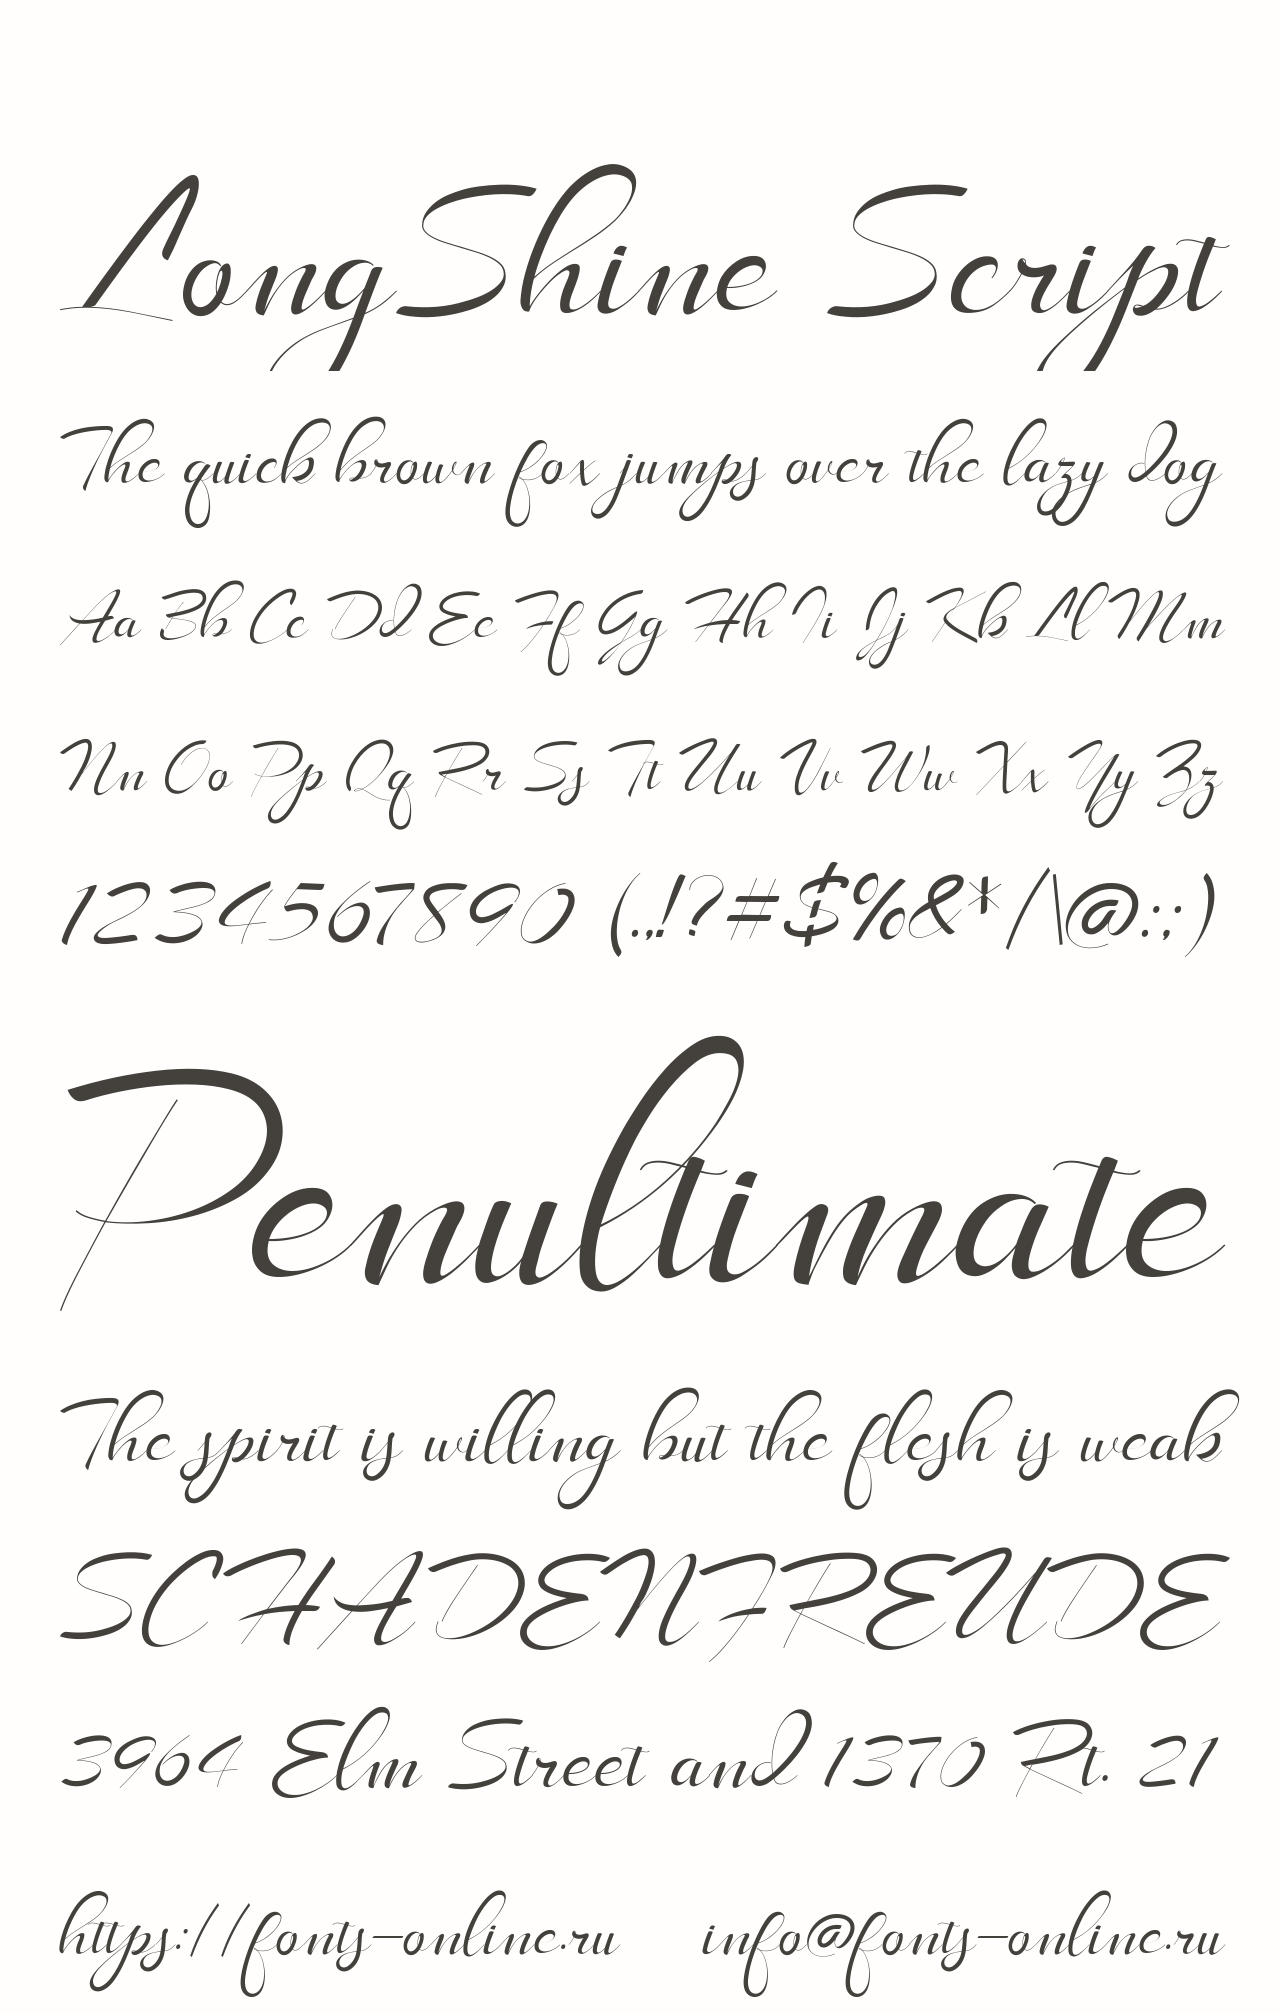 LongShine Script
The quick brown fox jumps over the lazy dog
Aa Bb Cc Dd Ee Ff Gg Hh Ii Jj Kk Ll Mm
Nn Oo Pp Qq Rr Ss Tt Uu Vv Ww Xx Yy Zz
1234567890 (.,!?#$%&*/\@:;)
Penultimate
The spirit is willing but the flesh is weak
SCHADENFREUDE
3964 Elm Street and 1370 Rt. 21
https://fonts-online.ru info@fonts-online.ru